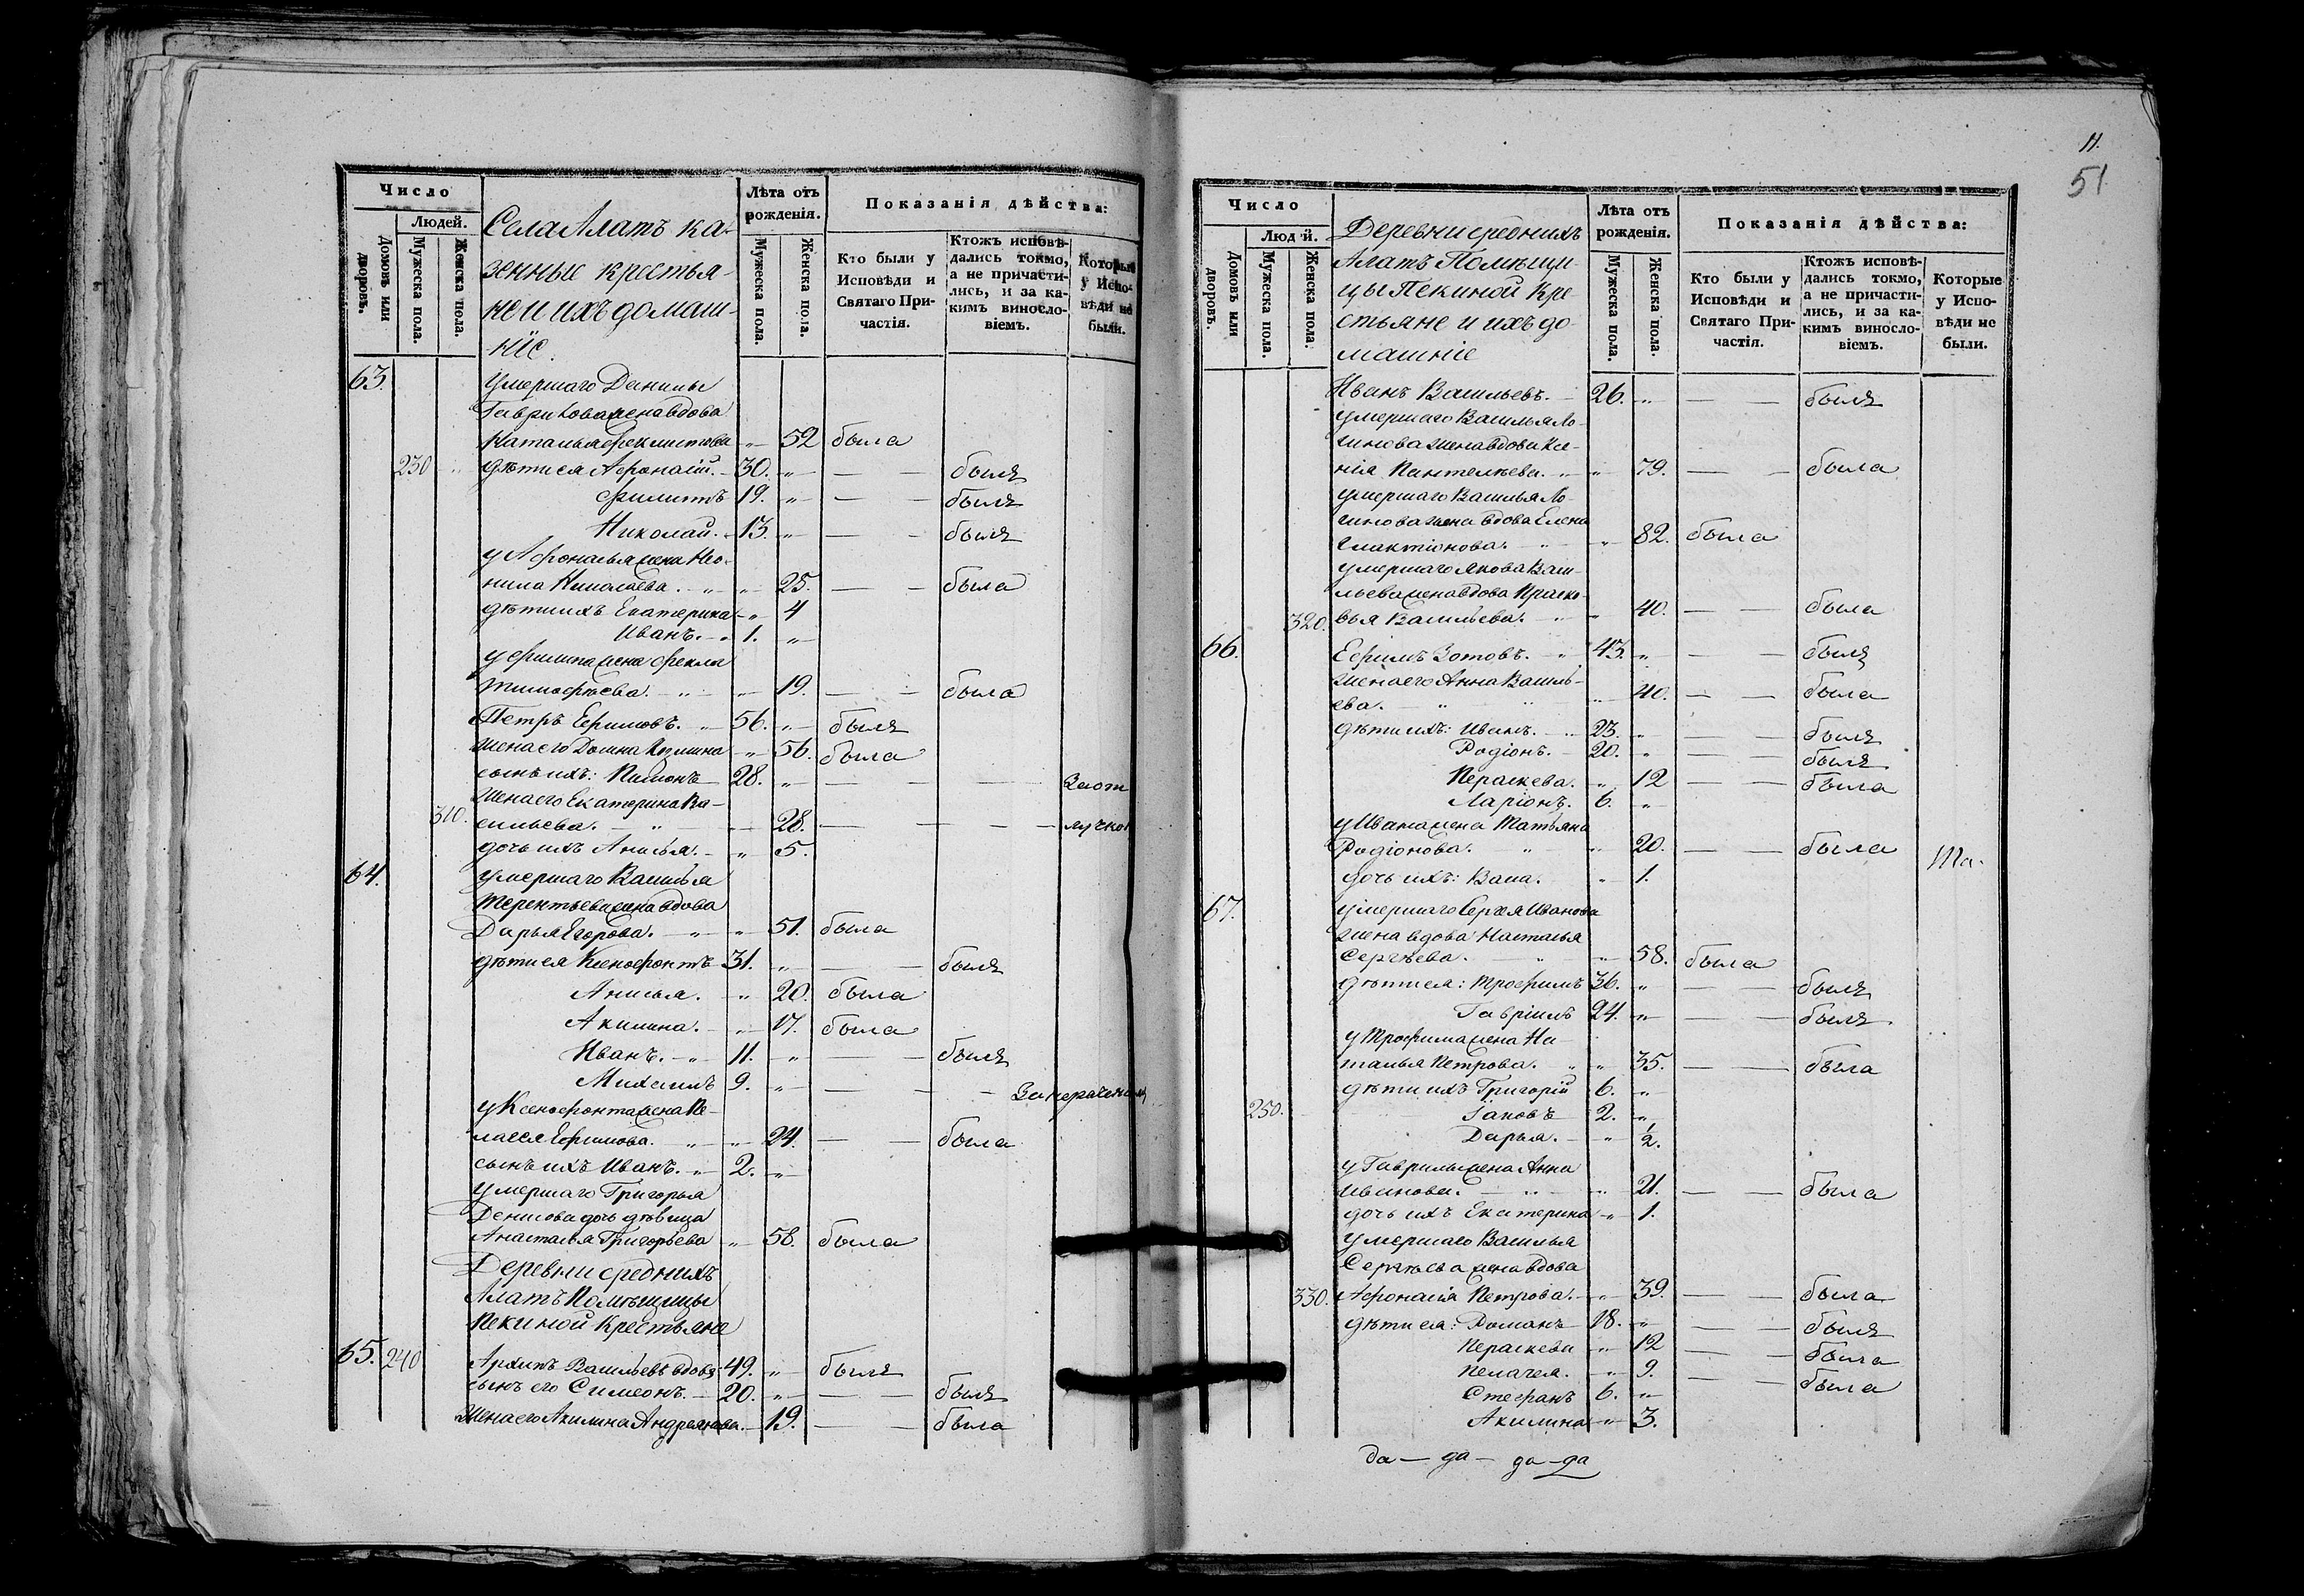 Число
Людей.
Домовъ или дворовъ.
Мужеска пола.
Женска пола.
Села Алатъ ка-
зенные крестья-
не и ихъ домаш-
ніе.
Лѣта отъ рожденія.
Мужеска пола.
Женска пола.
Показанія дѣйства:
Кто были у Исповѣди и Святаго При-частія.
Ктожъ исповѣ-дались токмо, а не причасти-лись, и за ка-кимъ виносло-віемъ.
Которые у Испо-вѣди не были.
63. умершаго Данилы
Гаврилова жена вдова
Наталья Феклистова - " - 52 была
230 " дѣти ея Афонасій. - 30. " — — былъ
Филиппъ 19. " — — былъ
Николай. - 13. " — — былъ
у Афонасья жена Нео-
нила Николаева. - " - " 25. — — была
дѣти ихъ Екатерина - " - 4
Иванъ. - " 1. "
у Филиппа жена Фекла
Тимофѣева. - " - " 19. — — была
Петръ Ефимовъ. - " 56. " былъ
жена его Домна Козмина - " 56. была
сынъ ихъ: Пименъ 28. " — —
жена его Екатерина Ва-
310. сильева. - " - 28. — — — —
дочь ихъ Анисья. - " - 5.
64. умершаго Василья
Терентьева жена вдова
Дарья Егорова. - " - " 51. была
дѣти ея Ксенофонтъ 31. " — — былъ
Анисья. - " 20. была
Акилина. - " 17. была
Иванъ. - " 11. " — — былъ
Михаилъ 9. " — — —
у Ксенофонта жена Пе-
лагея Ефимова. " - " 24. — — была
сынъ ихъ Иванъ. - " 2. "
умершаго Григорья
Денисова дочь дѣвица
Анастасья Григорьева " 58. была
Деревни среднихъ
Алатъ Помѣщицы
Пекиной Крестьяне
65. 240 Архипъ Васильевъ вдовъ 49. " былъ
сынъ его Симеонъ. - 20. " — — былъ
жена его Акилина Андреянова. - 19. — — была
11.
51
Число
Людей.
Домовъ или дворовъ.
Мужеска пола.
Женска пола.
Деревни среднихъ
Алатъ Помѣщи-
цы Пекиной Кре-
стьяне и ихъ до-
машніе
Лѣта отъ рожденія.
Мужеска пола.
Женска пола.
Показанія дѣйства:
Кто были у Исповѣди и Святаго При-частія.
Ктожъ исповѣ-дались токмо, а не причасти-лись, и за ка-кимъ виносло-віемъ.
Которые у Испо-вѣди не были.
Иванъ Васильевъ. - 26. " — — былъ
умершаго Василья Ло-
гинова жена вдова Ксе-
нія Пантелѣева. " " 79. — — была
умершаго Василья Ло-
гинова жена вдова Елена
Глактіонова. - " " 82. была
умершаго Якова Васи-
льева жена вдова Праско-
320. вья Васильева. - " " 40. — — была
66. Ефимъ Зотовъ. - " 43. " — — былъ
жена его Анна Василь-
ева. - " " " 40. — — была
дѣти ихъ: Иванъ. - " 23. " — — былъ
Родіонъ. - 20. " — — былъ
Пераскева. " 12 — — была
Ларіонъ. 6. "
у Ивана жена Татьяна
Родіонова. - " " 20. — — была
дочь ихъ: Васа. " 1.
67. умершаго Сергѣя Иванова
жена вдова Настасья
Сергѣева. - " " 58. была
дѣти ея: Трофимъ 36. " — — былъ
Гавріилъ 24. " — — былъ
у Трофима жена На-
талья Петрова. - " " 35. — — была
дѣти ихъ Григорій 6. "
250. Іаковъ 2. "
Дарья. - " 1/2.
у Гаврилы жена Анна
Иванова. - " " 21. — — была
дочь ихъ Екатерина - " 1.
умершаго Василья
Сергѣева жена вдова
330. Афонасія Петрова. - " 39. — — была
дѣти ея: Романъ 18. " — — былъ
Пераскева " 12 — — была
Пелагея. - " 9. — — была
Стефанъ 6. "
Акилина - " 3.
да — да — да — да